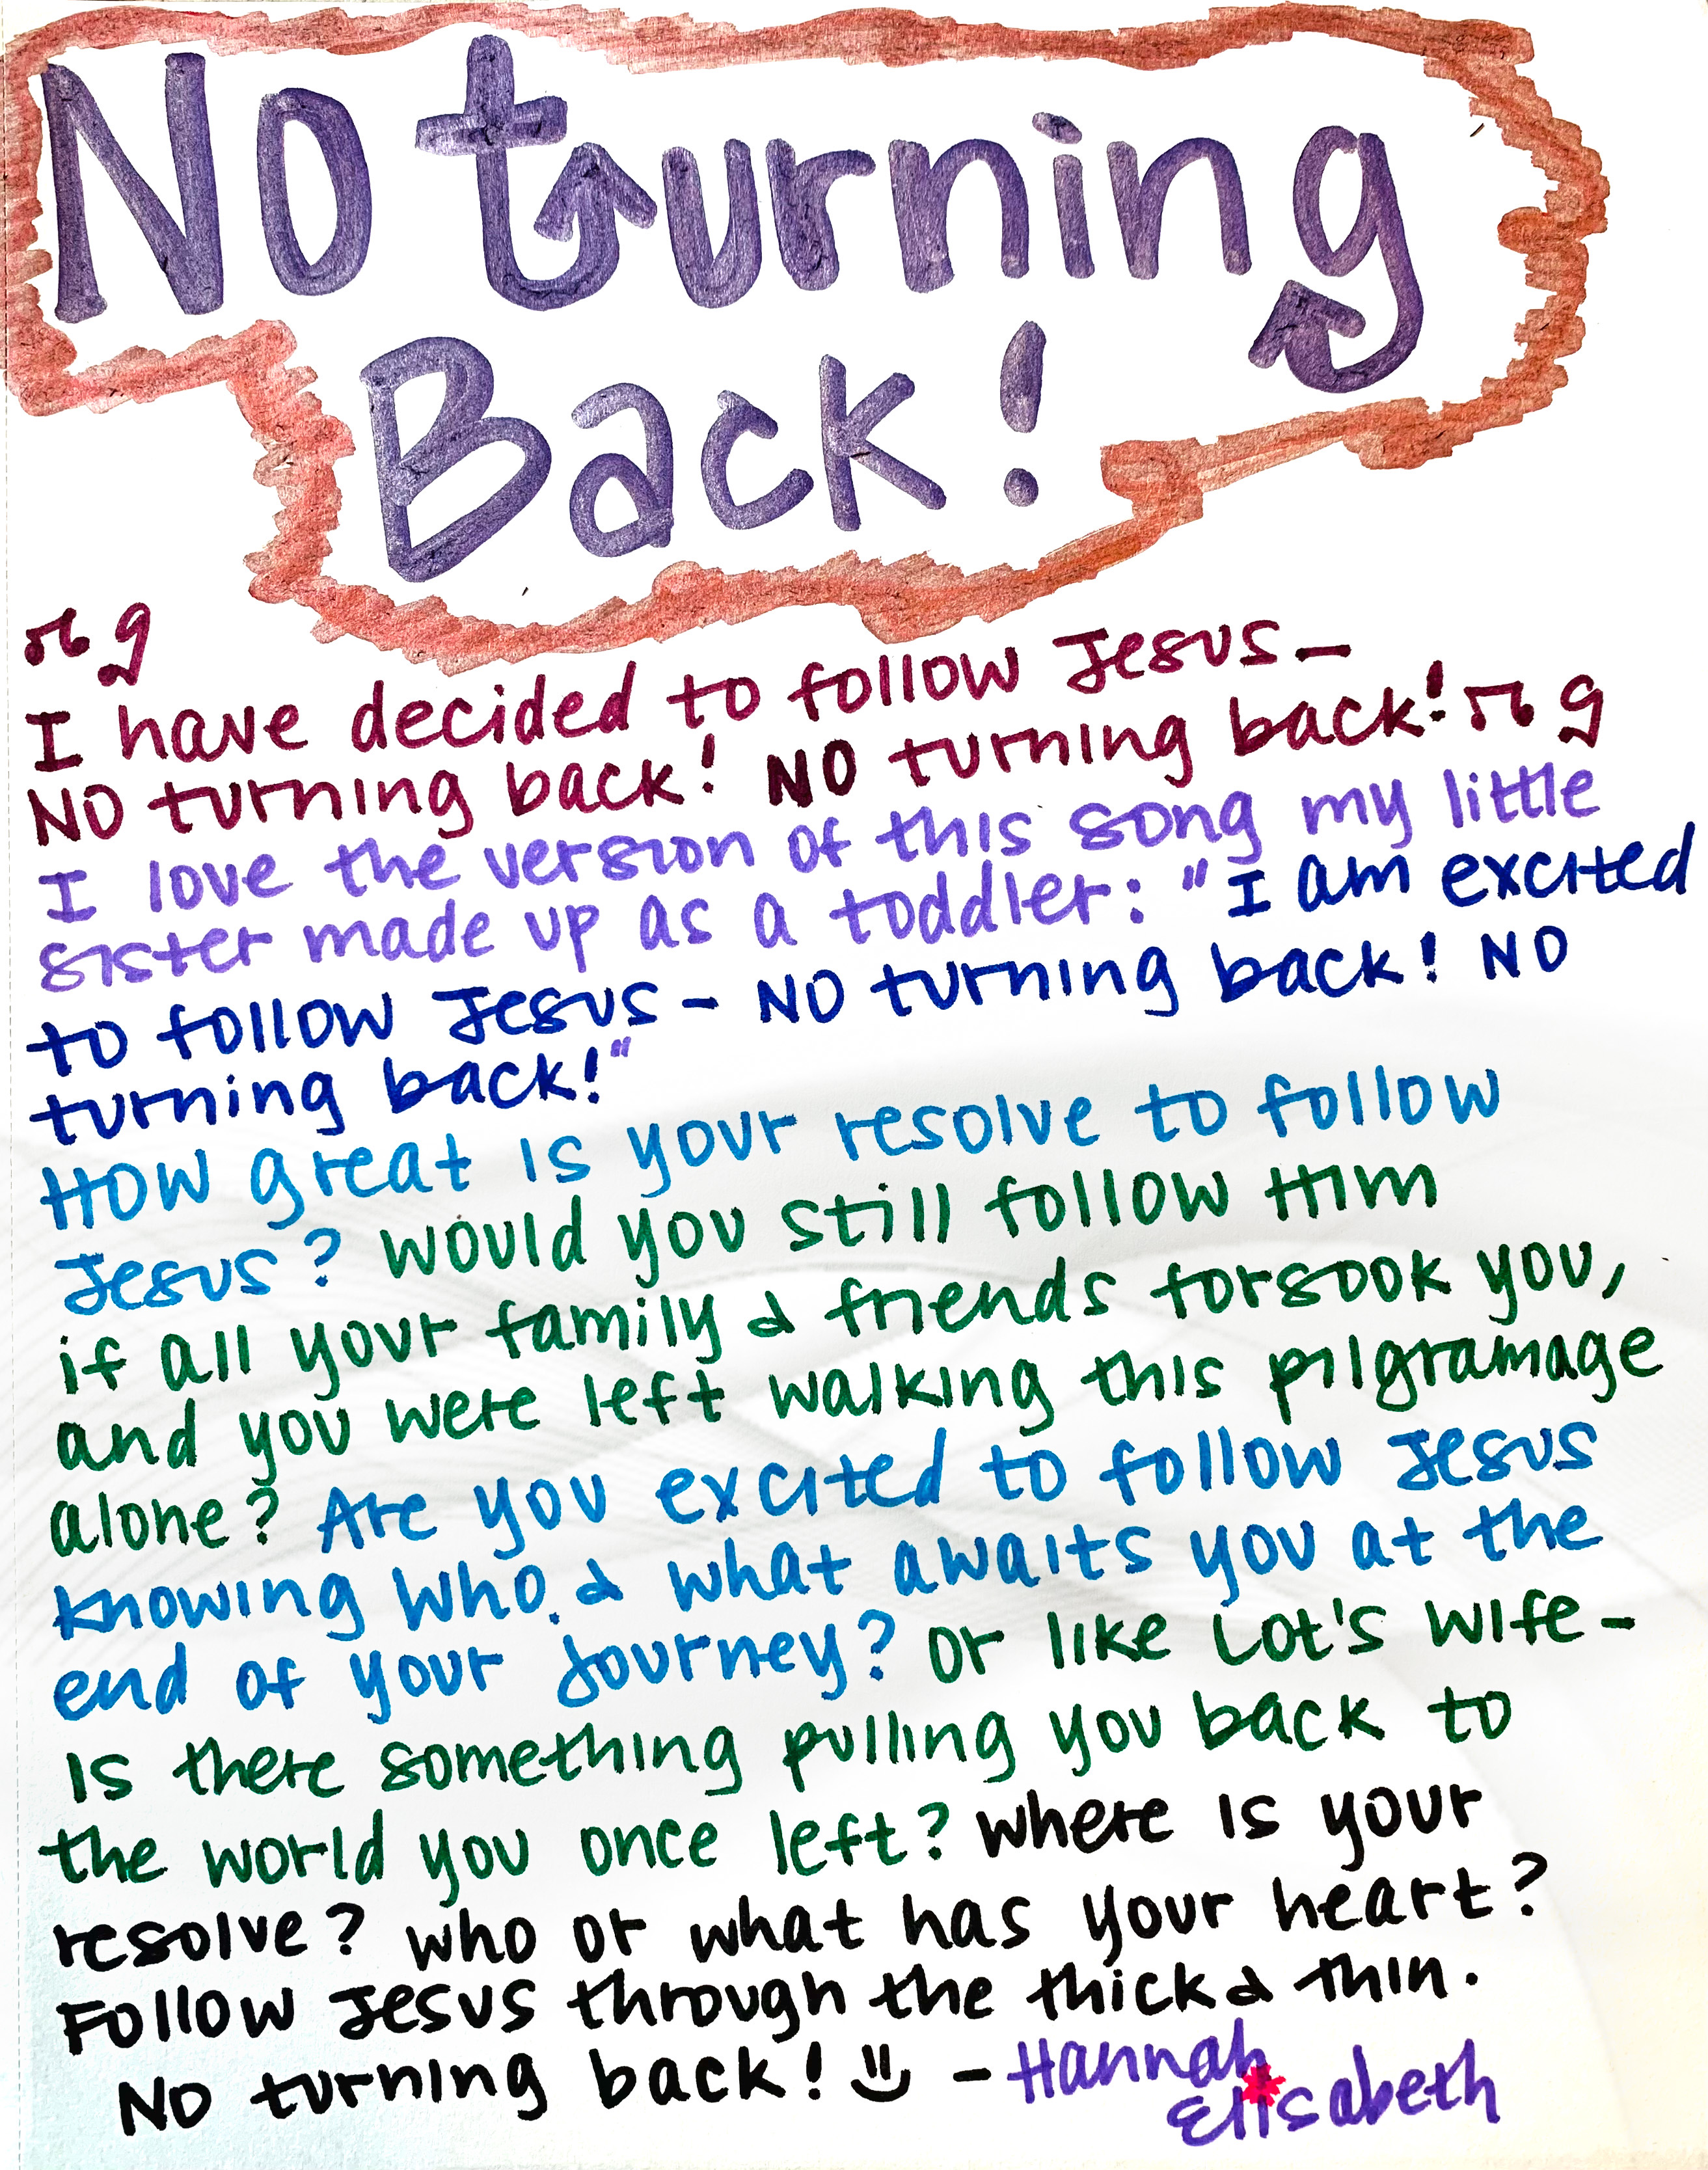 No turning
Back!
I have decided to follow Jesus-
No turning back! No turning back!
I love the version of this song my little
sister made up as a toddler: "I am excited
to follow Jesus - No turning back! No
turning back!"
How great is your resolve to follow
Jesus? Would you still follow Him
if all your family & friends forsook you,
and you were left walking this pilgramage
alone? Are you excited to follow Jesus
knowing who & what awaits you at the
end of your journey? Or like Lot's wife-
Is there something pulling you back to
the world you once left? Where is your
resolve? Who or what has your heart?
Follow Jesus through the thick & thin.
No turning back! - Hannah
Elisabeth